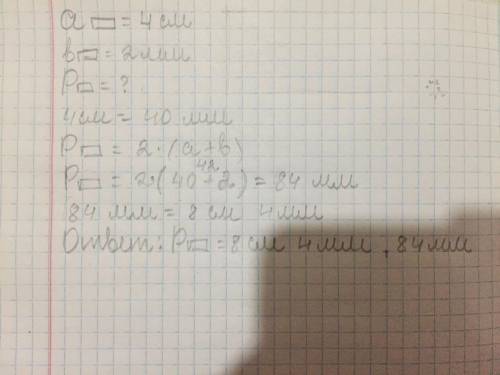 a▭ = 4 см
в▭ = 2 мм
P▭ = ?
4 см = 40 мм
P▭ = 2·(a+в)
42
P▭ = 2·(40+2) = 84 мм
84 мм = 8 см 4 мм
Ответ: P▭ = 8 см 4 мм, 84 мм